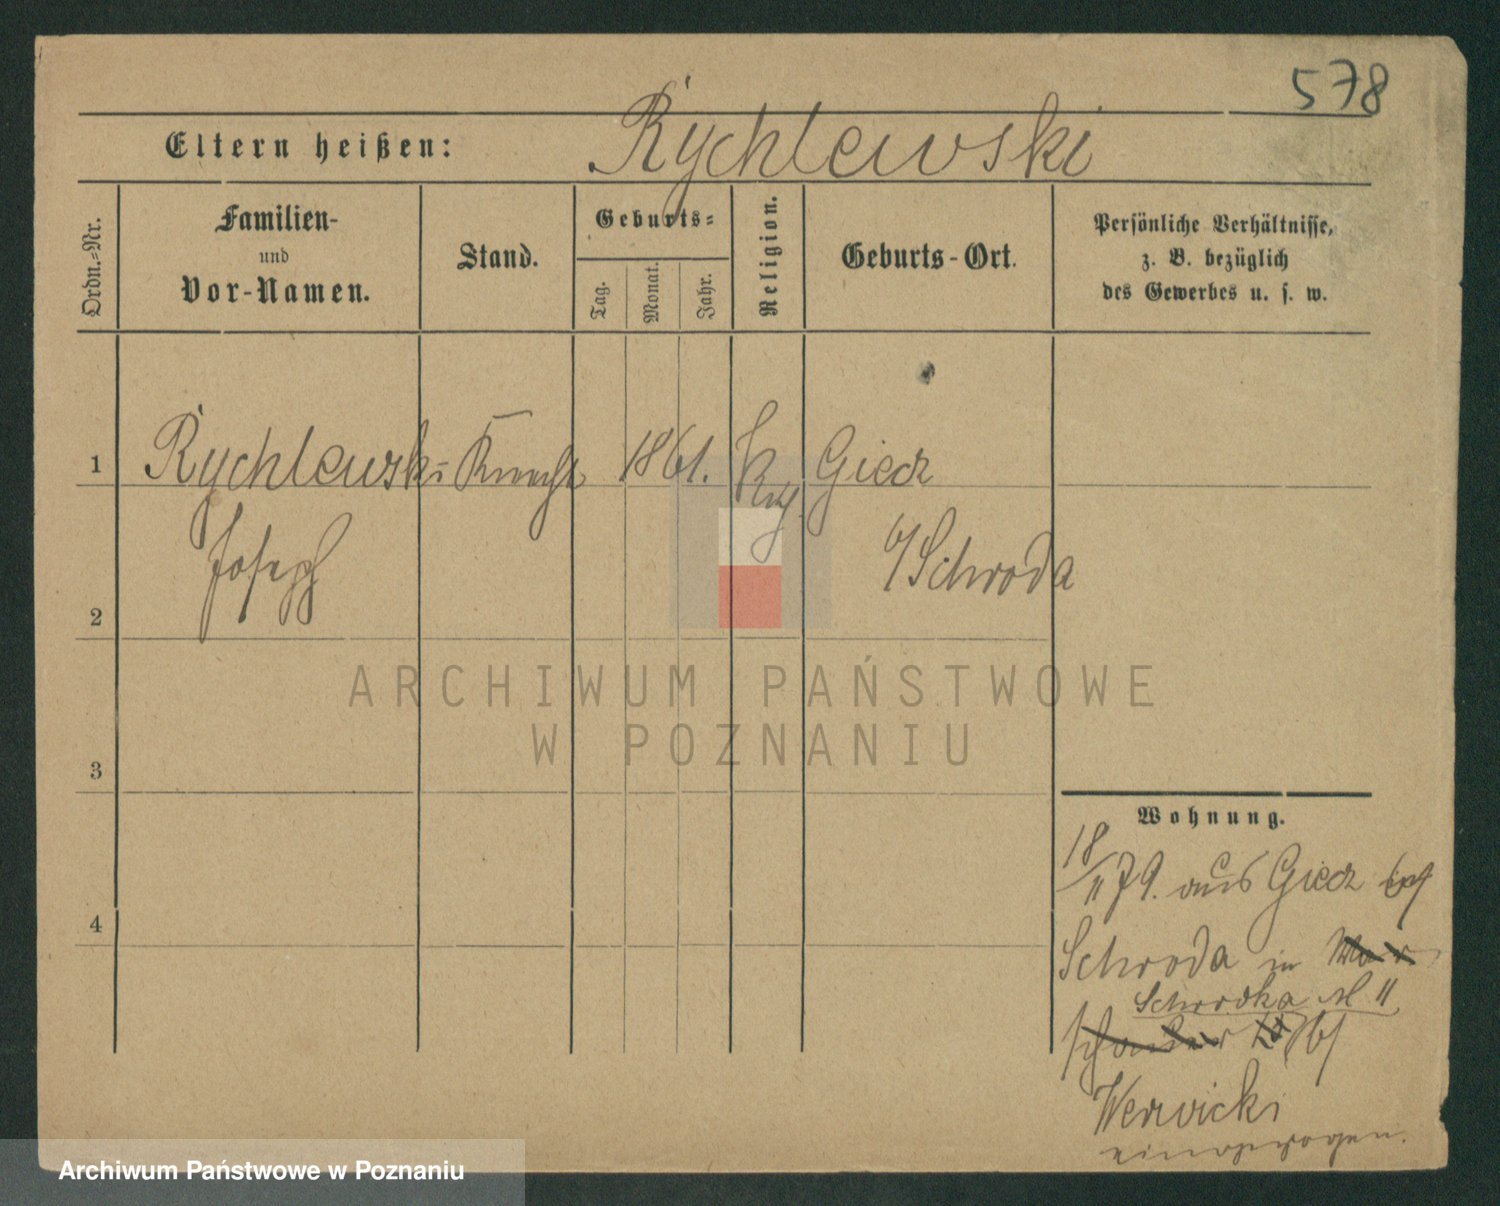 578
Eltern heißen: Rychlewski
Ordn.-Nr.
Familien-
und
Vor-Namen.
Stand.
Geburts=
Tag.
Monat.
Jahr.
Religion.
Geburts-Ort.
Persönliche Verhältnisse,
z. B. bezüglich
des Gewerbes u. s. w.
1 Rychlewski Knecht 1861. Giecz
Joseph b/ Schroda
2
3
4
ARCHIWUM PAŃSTWOWE
W POZNANIU
Wohnung.
18/11 79. aus Giecz
Schroda in
Schrodka N 11
b/
Wervicki
eingezogen.
Archiwum Państwowe w Poznaniu